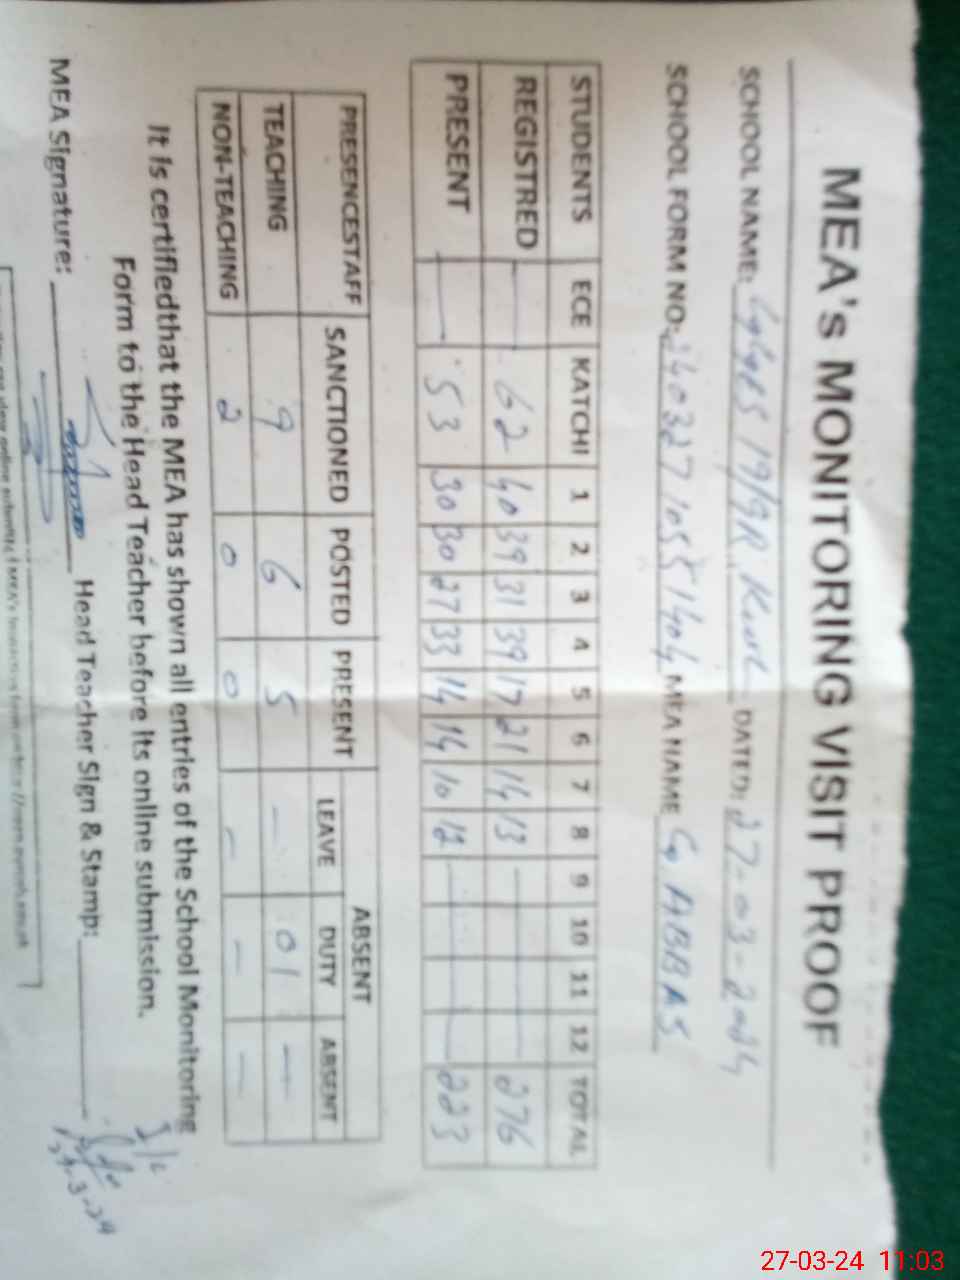 MEA's MONITORING VISIT PROOF
SCHOOL NAME: 19/9R DATED: 27-03-2024
SCHOOL FORM NO: MEA NAME G ABBAS
STUDENTS ECE KATCHI 1 2 3 4 5 6 7 8 9 10 11 12 TOTAL
REGISTRED — 62 40 39 31 39 17 21 14 13 — 276
PRESENT — 53 30 30 27 33 14 14 10 12 — 223
PRESENCESTAFF SANCTIONED POSTED PRESENT ABSENT
LEAVE DUTY ABSENT
TEACHING 9 6 5 — 01 —
NON-TEACHING 2 0 0 — — —
It is certifiedthat the MEA has shown all entries of the School Monitoring
Form to the Head Teacher before its online submission.
MEA Signature: Head Teacher Sign & Stamp:
27-03-24 11:03